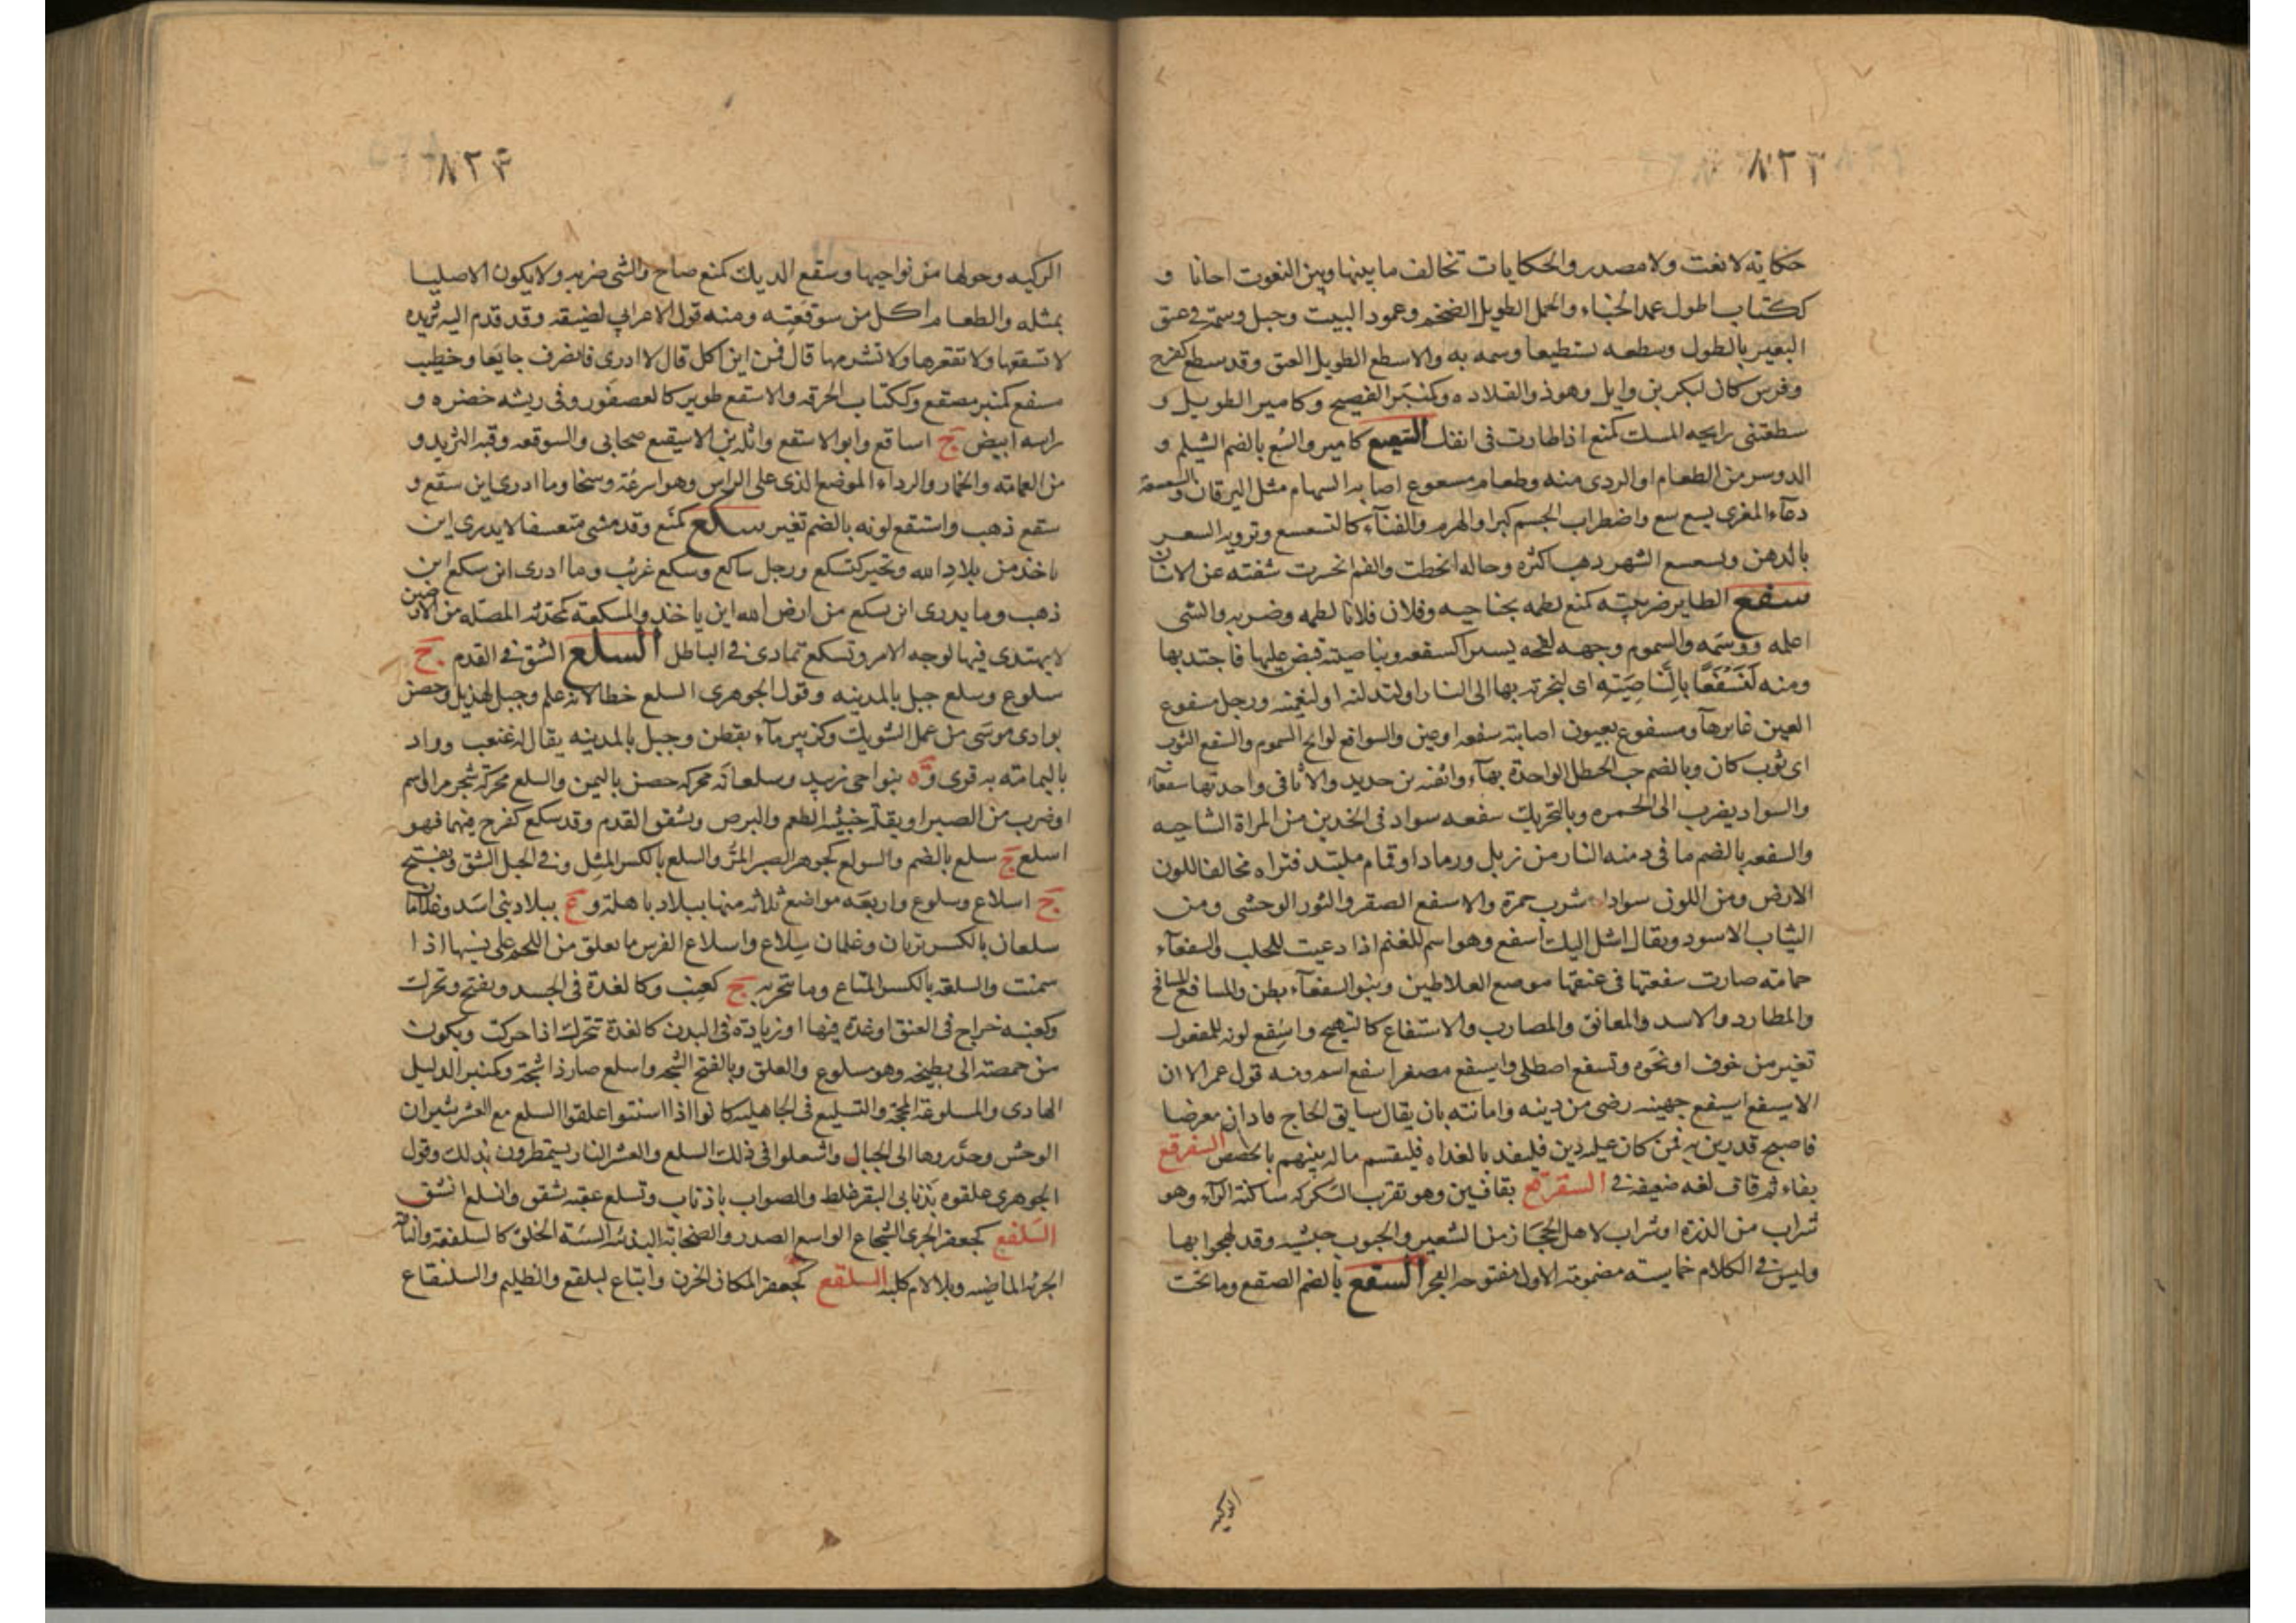 ٨٢٣
حكاية لا نعت ولا مصدر والحكايات تخالف ما بينها وبين النعوت احانا و
ككتاب اطول عمد الخباء والجمل الطويل الضخم وعمود البيت وجبل وسمة في عنق
البعير بالطول وسطعه تسطيعا وسمه به والاسطع الطويل العنق وقد سطع كفرح
وفرس كان لبكر بن وايل وهو ذو القلاده وكمنبر الفصيح وكامير الطويل و
سطعتنى رايحه المسك كمنع اذا طارت فى انفك السعيع كامير والسع بالضم الشيلم و
الدوسر من الطعام او الردى منه وطعام مسعوع اصابه السهام مثل اليرقان والسعسعة
دعاء المعزى بسع سع واضطراب الجسم كبرا والهرم والفناء كالتسعسع وترويه الشعر
بالدهن وتسعسع الشهر ذهب اكثره وحاله انحطت والفم انحسرت شفته عن الاسنان
سفع الطاير ضريبته كمنع لطمه بجناحيه وفلان فلانا لطمه وضربه والشى
اعلمه ووسمه والسموم وجهه لفحه يسيرا كسفعه وبناصيته قبض عليها فاجتذبها
ومنه لَنَسْفَعًا بِالنَّاصِيَةِ اى لنجرنه بها الى النار او لنذلنه او لنقيمنه ورجل مسفوع
العين غايرها ومسفوع بعيون اصابته سفعه اى عين والسوافع لوافح السموم والسفع الثوب
اى ثوب كان وبالضم حب الحنظل الواحدة بهاء واثفيه من حديد والاثافى واحدتها سفعاء
والسواد يضرب الى الحمره وبالتحريك سفعه سواد فى الخدين من المراة الشاحبه
والسفعه بالضم ما فى دمنه النار من زبل او رماد او قمام ملتبد فتراه مخالفا للون
الارض ومن اللون سوادا شرب حمرة والاسفع الصقر والثور الوحشى ومن
الثياب الاسود ويقال اشل اليك أسفع وهو اسم للغنم اذا دعيت للحلب والسفعاء
حمامة صارت سفعتها فى عنقها موضع العلاطين وبنو السفعاء بطن والمسافع المسافح
والمطارد والاسد والمعانق والمضارب والاستفاع كالتهبج واستفع لونه للمفعول
تغير من خوف او نحوه وتسفع اصطلى واسيفع مصغر اسفع اسم ومنه قول عمر الا ان
الاسيفع اسيفع جهينه رضى من دينه وامانته بان يقال سابق الحاج فادان معرضا
فاصبح قدرين به فمن كان عليه دين فليغد بالغداه فليقسم ماله بينهم بالحصص السفرقع
بفاء ثم قاف لغه ضعيفة في السقرقع بقافين وهو تعريب السكركه ساكنة الراء وهو
شراب من الذرة او شراب لاهل الحجاز من الشعير والحبوب حبشيه وقد لهجوا بها
وليس في الكلام خماسيته مضمومة الاول مفتوحه العجز السقع بالضم الصقع وما تحت
الركيه
٨٢٤
الركيه وحولها من نواحيها وسقع الديك كمنع صاح والشى ضربه ولا يكون الا صلبا
بمثله والطعام اكل من سوقعته ومنه قول الاعرابي لضيفه وقد قدم اليه ثريده
لا تسقعها ولا تقعرها ولا تشرمها قال فمن اين اكل قال لا ادرى فانصرف جايعا وخطيب
مسقع كمنبر مصقع وككتاب الخرقه والاسقع طوير كالعصفور وفى ريشه خضره و
راسه ابيض ج اساقع وابو الاسقع واثله بن الاسقع صحابى والسوقعه وقبه الثريد و
من العمامه والخمار والرداء الموضع الذى على الراس وهو اسرعه وسخا وما ادرى اين سقع و
سقع ذهب واستقع لونه بالضم تغير سكع كمنع وقد مشى متعسفا لا يدرى اين
ياخذ من بلاد الله وتحير كتسكع ورجل ساكع وسكع غريب وما ادرى اين سكع اين
ذهب وما يدرى اين يسكع من ارض الله اين ياخذ والمسكعة كمحدثه المضله من الارضين
لا يهتدى فيها لوجه الامر وتسكع تمادى في الباطل السلع الشق في القدم ج
سلوع وسلع جبل بالمدينه وقول الجوهرى السلع خطا لانه علم وجبل لهذيل وحصن
بوادى موسى من عمل الشوبك وكزبير ماء بقطن وجبل بالمدينه يقال له غبغب وواد
باليمامه به قرى وة بنواحى زبيد وسلعانه محركه حصن باليمن والسلع محركة شجر مر او سم
او ضرب من الصبر او بقلة خبيثه الطعم والبرص وتشقق القدم وقد سلع كفرح فيهما فهو
اسلع ج سلع بالضم والسولع كجوهر الصبر المرّ والسلع بالكسر المثل وفي الجبل الشق ويفتح
ج اسلاع وسلوع واربعه مواضع ثلاثه منها ببلاد باهلة وع ببلاد بنى اسد وغلامان
سلعان بالكسر تربان وغلمان سِلاع واسلاع الفرس ما تعلق من اللحم على نسيها اذا
سمنت والسلعه بالكسر المتاع وما تجر به ج كعنب وكالغدة فى الجسد ويفتح وتحرك
وكعنبه خراج فى العنق او غدة فيها او زيادة فى البدن كالغدة تتحرك اذا حركت وبكون
من حمصة الى بطيخه وهو مسلوع والعلق وبالفتح الشجه واسلع صار ذا شجة وكمنبر الدليل
الهادى والمسلوعة المحجة والتسليع فى الجاهليه كانوا اذا اسنتوا علقوا السلع مع العشر بثيران
الوحش وحدّروها الى الجبال واشعلوا فى ذلك السلع والعشر النار يستمطرون بذلك وقول
الجوهرى علقوه بذنابى البقر غلط والصواب باذناب وتسلع عقبه تشقق وانسلع انشق
السلفع كجعفر الجرى الشجاع الواسع الصدر والصخابة البذئه السئة الخلق كالسلفعة والناقه
الجريه الماضيه وبلا لام كلبه السلقع كجعفر المكان الحزن واتباع لبلقع والظليم والسلنقاع